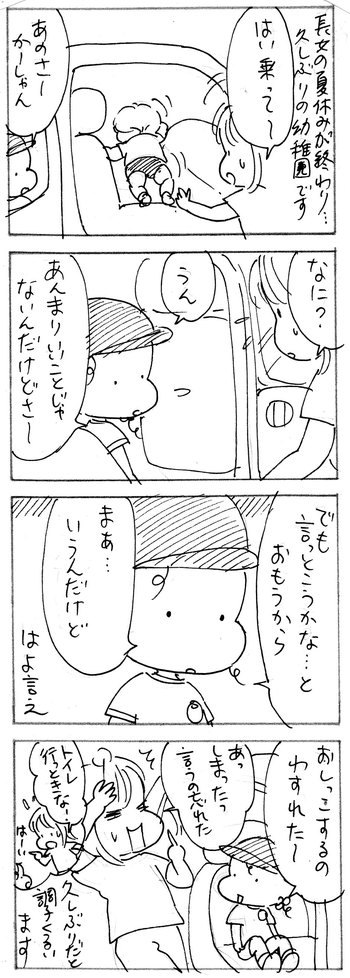 長女の夏休みが終わり…
久しぶりの幼稚園です
はい乗って〜
あのさー
かーしゃん
なに?
うん
あんまりいいことじゃ
ないんだけどさ〜
でも
言っとこうかな…と
おもうから
まあ…
いうんだけど
はよ言え
おしっこするの
わすれた〜
あっ
しまったっ
言うの忘れた
トイレ
行ときなー!
はーい
久しぶりだと
調子くるい
ます